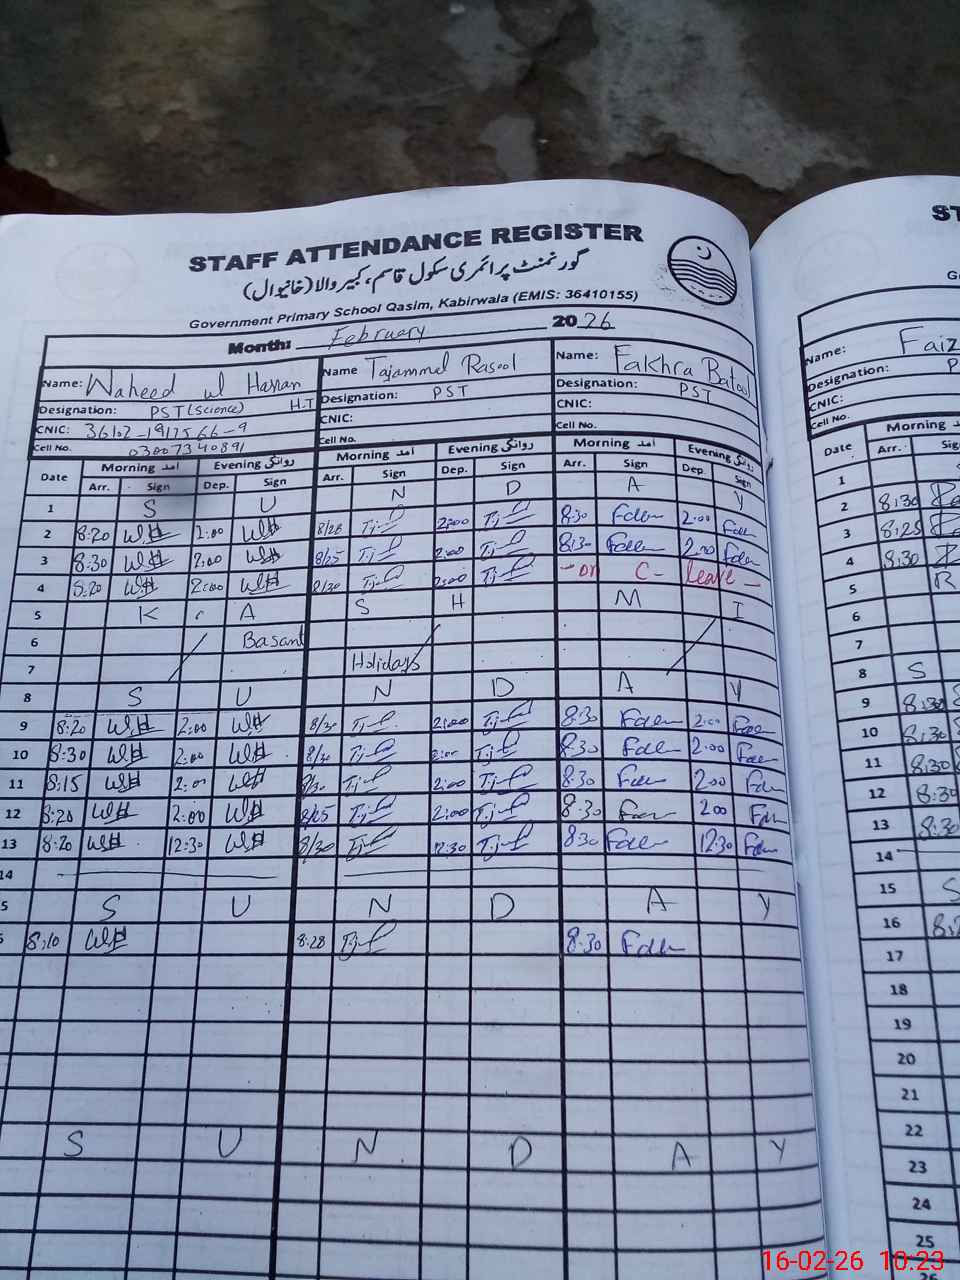 STAFF ATTENDANCE REGISTER
گورنمنٹ پرائمری سکول قاسم، کبیروالا (خانیوال)
Government Primary School Qasim, Kabirwala (EMIS: 36410155)
Month: February 2026
Name: Waheed ul Hassan Name Tajammel Rasool Name: Fakhra Batool
Designation: PST (Science) H.T Designation: PST Designation: PST
CNIC: CNIC: CNIC:
Cell No. 03007340891 Cell No. Cell No.
Date Morning آمد Evening روانگی Morning آمد Evening روانگی Morning آمد Evening روانگی
Arr. Sign Dep. Sign Arr. Sign Dep. Sign Arr. Sign Dep. Sign
1 S U N D A Y
2 8:20 WH 2:00 WH 8/28 2:00 8:30 2:00
3 8:30 WH 2:00 WH 8/25 2:00 8:30 2:00
4 8:20 WH 2:00 WH 8/30 2:00 - on C- leave -
5 K A S H M I
6 Basant
7 Holidays
8 S U N D A Y
9 8:20 WH 2:00 WH 8/30 2:00 8:30 2:00
10 8:30 WH 2:00 WH 2:00 8:30 2:00
11 8:15 WH 2:00 WH 8/30 2:00 8:30 200
12 8:20 WH 2:00 WH 8/25 2:00 8:30 200
13 8:20 WH 12:30 WH 8/30 12:30 8:30 12:30
14
5 S U N D A Y
8:10 WH 8:28 8:30
S U N D A Y
ST
Name: Faiz
Designation: P
CNIC:
Cell No.
Date Morning آمد
Arr. Sign
1
2 8:30
3 8:25
4 8:30
5 R
6
7
8 S
9 8:30
10 8:30
11 8:30
12 8:30
13 8:30
14
15 S
16
17
18
19
20
21
22
23
24
25
16-02-26 10:23